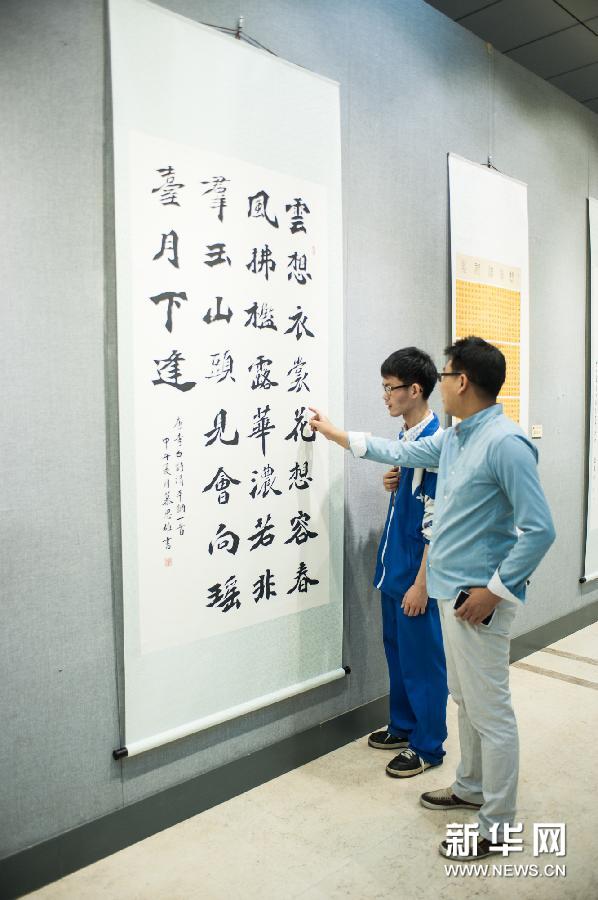 雲想衣裳花想容春
風拂檻露華濃若非
羣玉山頭見會向瑶
臺月下逢
唐李白詩清平調一首
甲午夏月書
新华网
WWW.NEWS.CN